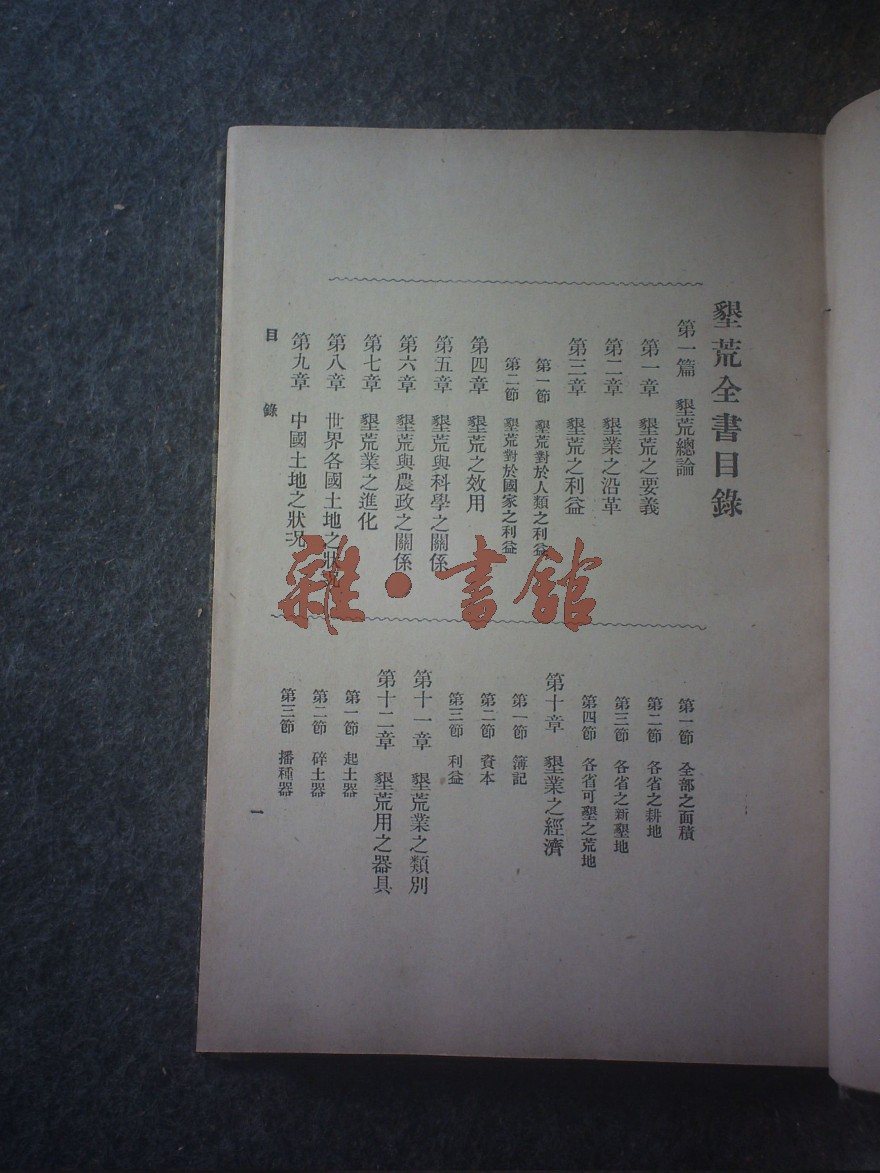 墾荒全書目錄
第一篇 墾荒總論
第一章 墾荒之要義
第二章 墾業之沿革
第三章 墾荒之利益
第一節 墾荒對於人類之利益
第二節 墾荒對於國家之利益
第四章 墾荒之效用
第五章 墾荒與科學之關係
第六章 墾荒與農政之關係
第七章 墾荒業之進化
第八章 世界各國土地之狀況
第九章 中國土地之狀況
第一節 全部之面積
第二節 各省之耕地
第三節 各省之新墾地
第四節 各省可墾之荒地
第十章 墾業之經濟
第一節 簿記
第二節 資本
第三節 利益
第十一章 墾荒業之類別
第十二章 墾荒用之器具
第一節 起土器
第二節 碎土器
第三節 播種器
目錄
一
雜·書館